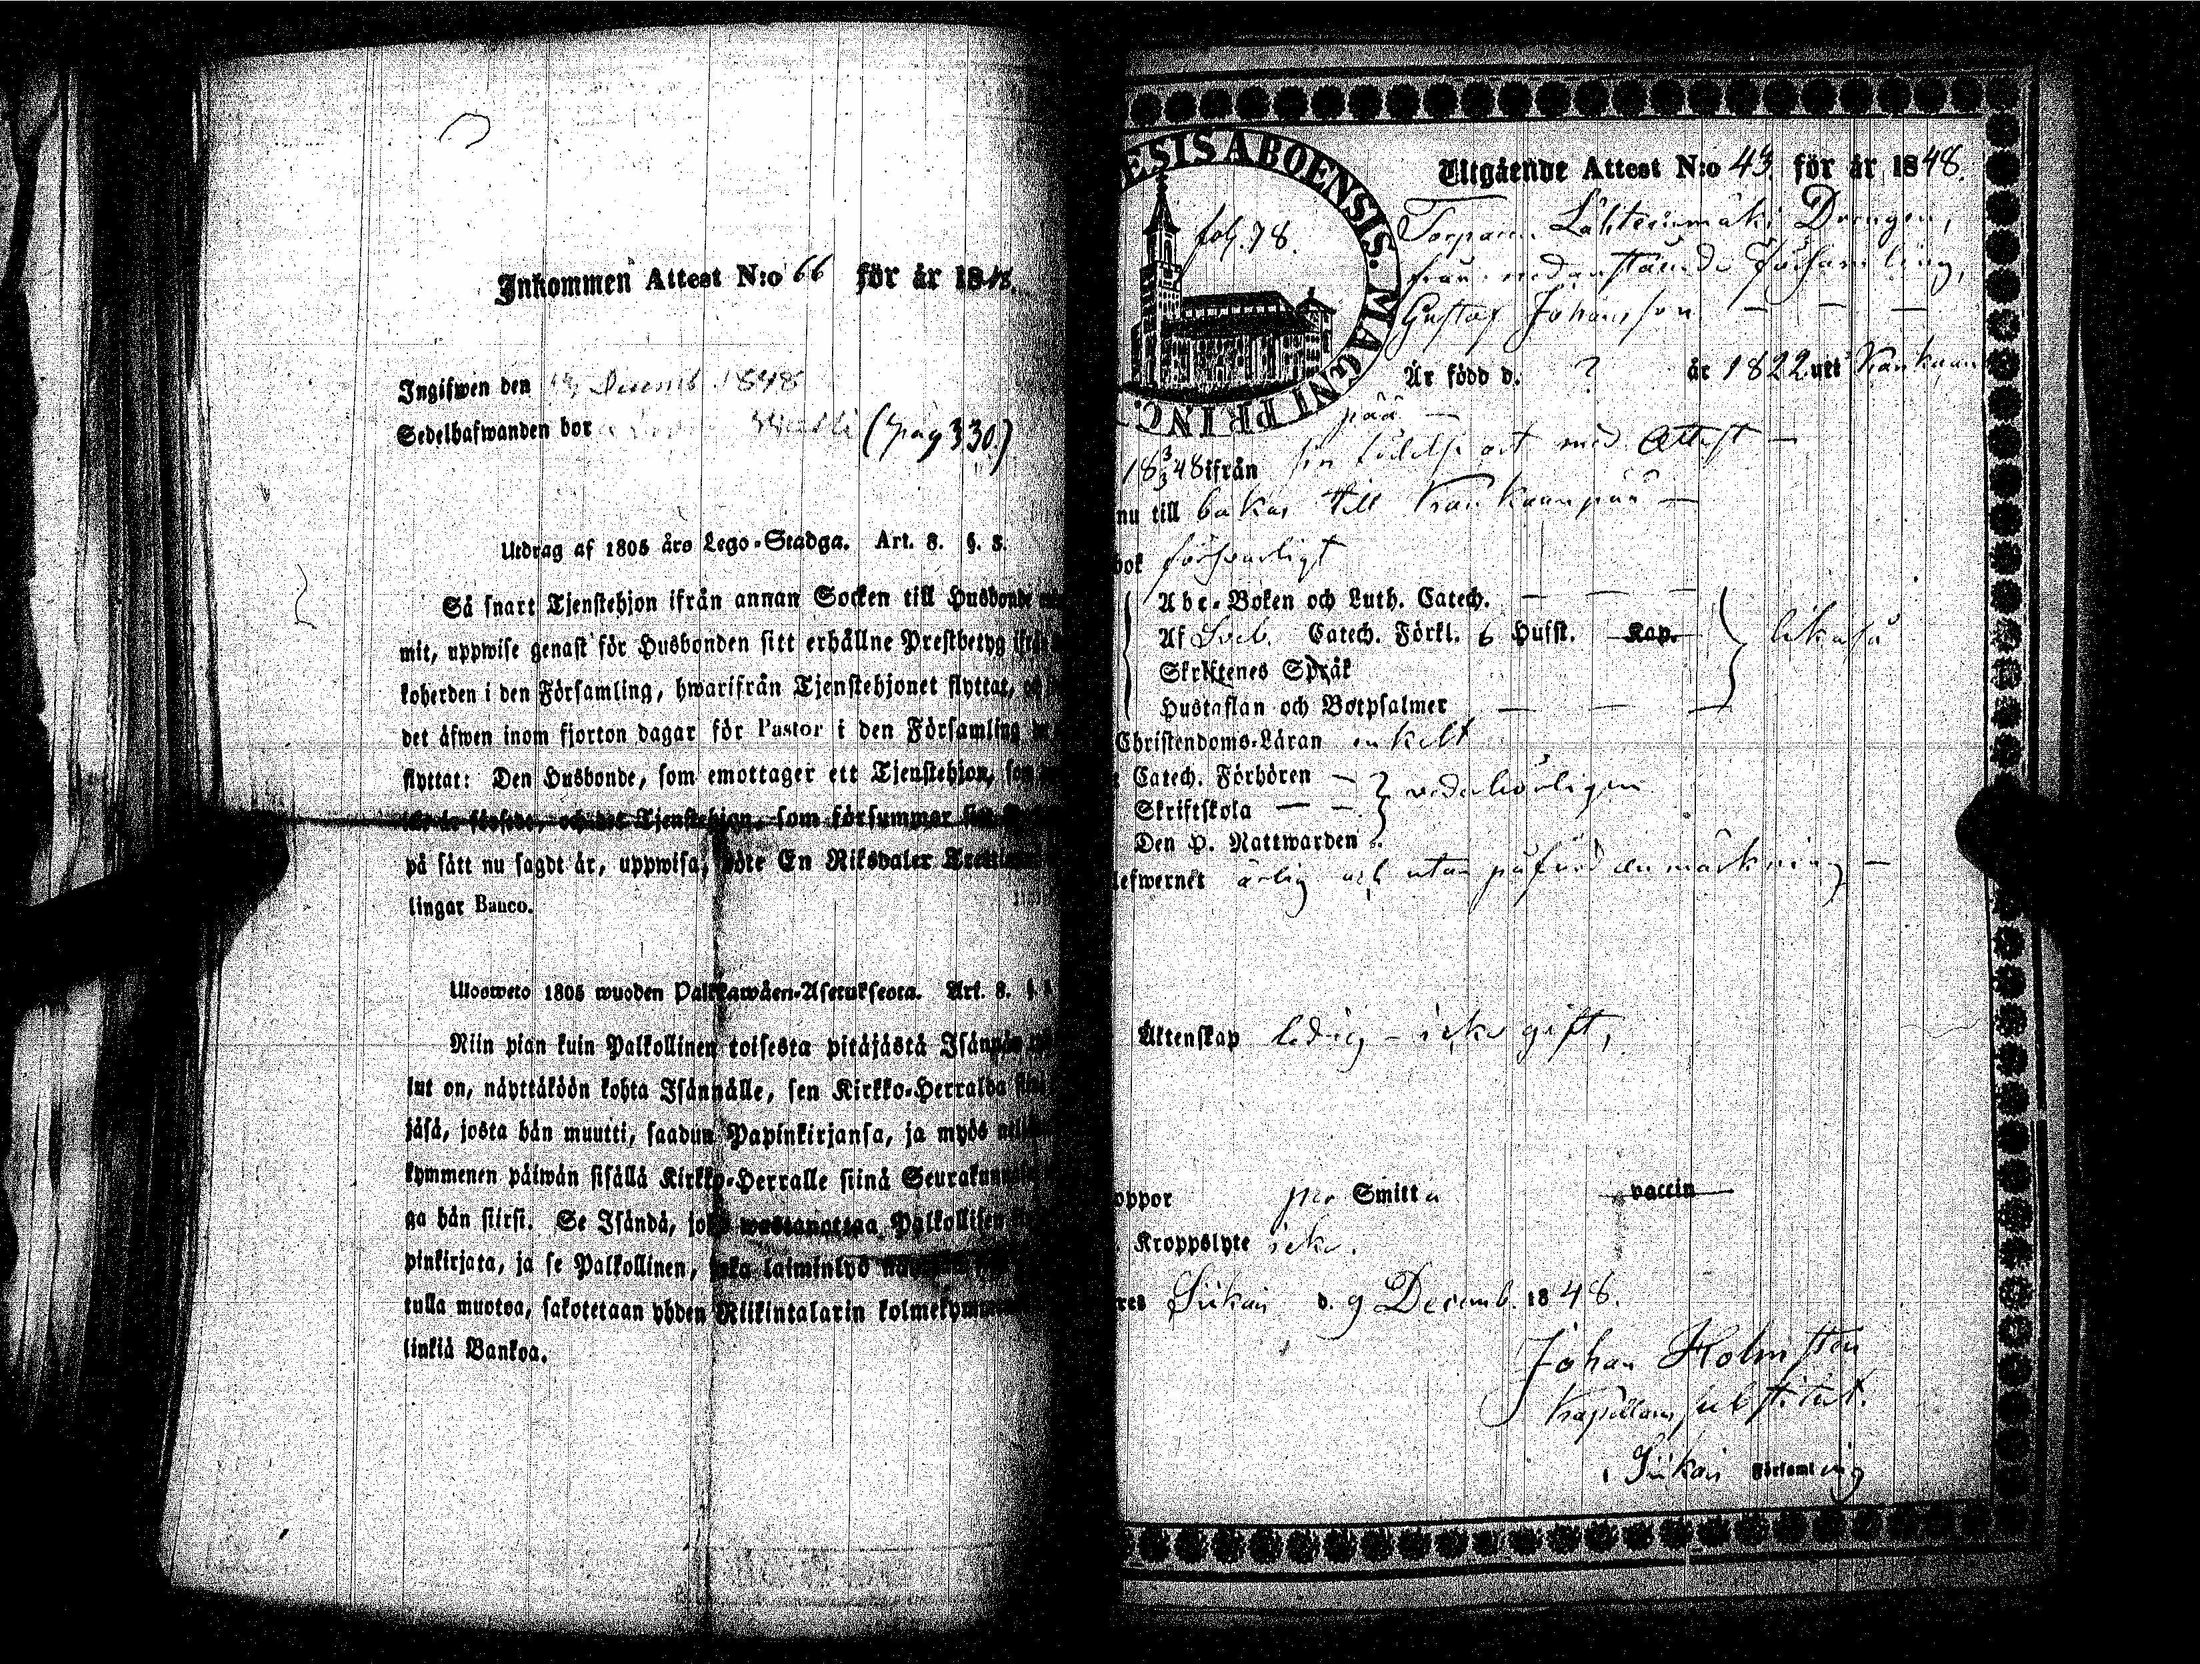 Inkommen Attest N:o 66 för år 1848.
Ingifwen den Decemb. 1848
Sedelhafwanden bor (pag 330.)
Utdrag af 1805 års Lego-Stadga. Art. 8. §. 8.
Så snart Tjenstehjon ifrån annan Socken till Husbonde
mit, uppwise genast för Husbonden sitt erhållne Prestbetyg
koherden i den Församling, hwarifrån Tjenstehjonet flyttat,
det äfwen inom fjorton dagar för Pastor i den Församling
flyttat: Den Husbonde, som emottager ett Tjenstehjon,
och det Tjenstehjon, som försummar
på sätt nu sagdt är, uppwisa, böte En Riksdaler
lingar Banco.
Ulosweto 1805 wuoden Palkkawäen-Asetuksesta. Art. 8. §.
Niin pian kuin Palkollinen toisesta pitäjästä Isännän
lut on, näyttäköön kohta Isännälle, sen Kirkko-Herralda
jäsä, josta hän muutti, saadun Papinkirjansa, ja myös
kymmenen päiwän sisällä Kirkko-Herralle siinä
ga hän siirsi. Se Isändä, joka wastanottaa Palkollisen
pinkirjata, ja se Palkollinen, joka laiminlyö
tulla muotoa, sakotetaan yhden Riikintalarin
linkiä Bankoa.
ESIS ABOENSIS. MAGNI PRINC.
fol. 78.
Utgående Attest N:o 43. för år 1848.
Torparen Drengen,
från nedanstående Församling,
Gustaf Johansson — — —
Är född d. ? år 1822 uti Kankaan
pää —
18 3/3 48 ifrån sin födelse ort med Attest —
nu till bakas till Kankaanpää —
bok försvarligt
Abc-Boken och Luth. Catech. — — —
Af Sveb. Catech. Förkl. 6 Hufst. Kap. likaså
Skriftenes Språk
Hustaflan och Botpsalmer — — —
Christendoms-Läran enkelt
Catech. Förhören —
Skriftskola — — vederbörligen
Den H. Nattwarden
lefwernet ärlig och utan påförd anmärkning —
Äktenskap ledig – icke gift,
oppor Smitta vaccin
Kroppslyte icke.
res Siikais d. 9 Decemb. 1848.
Johan Holmsten
Kapellans substitut.
i Siikais Församling